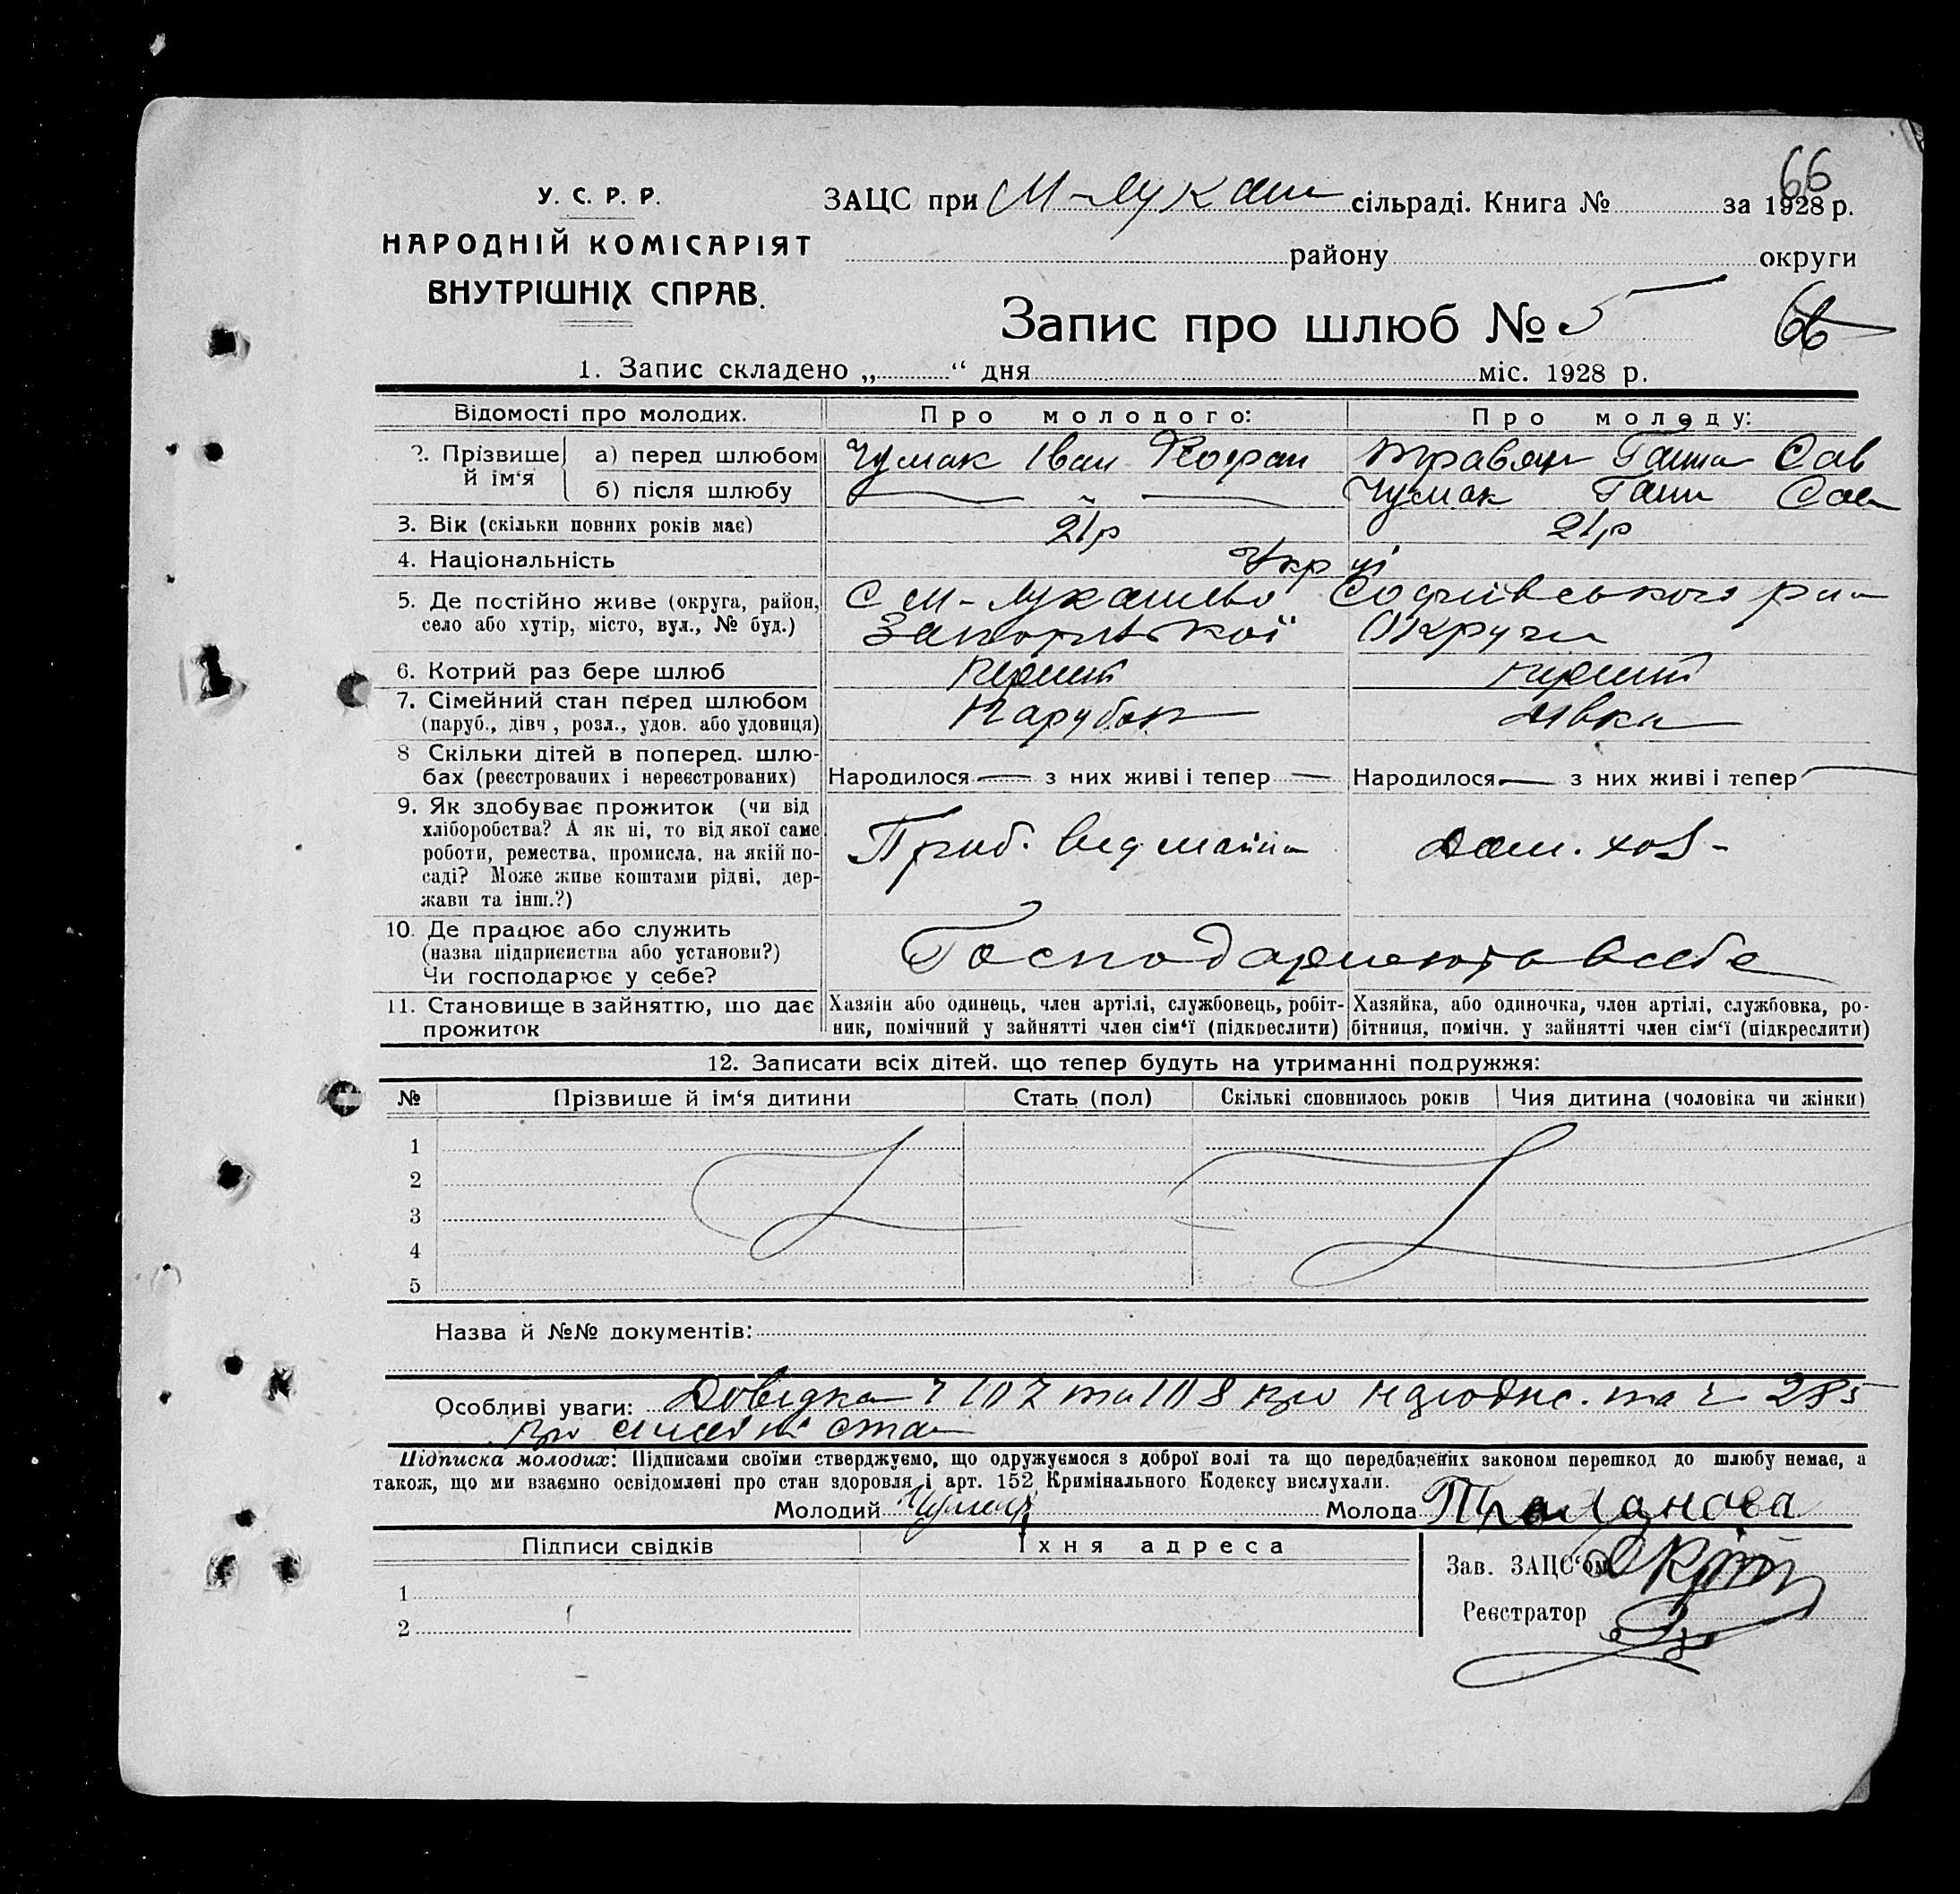 66
У. С. Р. Р.
НАРОДНІЙ КОМІСАРІЯТ
ВНУТРІШНІХ СПРАВ.
ЗАЦС при М-Лукаш сільраді. Книга № за 1928 р.
району округи
Запис про шлюб № 5
66
1. Запис складено „ “ дня міс. 1928 р.
Відомості про молодих. Про молодого: Про молоду:
2. Прізвище й ім‘я а) перед шлюбом Чумак Іван Ганна Сав
б) після шлюбу Чумак Ганн Сав
3. Вік (скільки повних років має) 21р 21р
4. Національність Укр ці
5. Де постійно живе (округа, район, С М-Лукашево Софіївського
село або хутір, місто, вул., № буд.) Запорізької Округи
6. Котрий раз бере шлюб перший перший
7. Сімейний стан перед шлюбом Парубок дівка
(паруб., дівч., розл., удов. або удовиця)
8 Скільки дітей в поперед. шлю-
бах (реєстрованих і нереєстрованих) Народилося — з них живі і тепер — Народилося — з них живі і тепер —
9. Як здобуває прожиток (чи від
хліборобства? А як ні, то від якої саме
роботи, ремества, промисла, на якій по-
саді? Може живе коштами рідні, дер-
жави та інш.?)
Дом. хоз-
10. Де працює або служить
(назва підприєиства або установи?)
Чи господарює у себе?
Господарюють в себе
11. Становище в зайняттю, що дає Хазяін або одинець, член артілі, службовець, робіт- Хазяйка, або одиночка, член артілі, службовка, ро-
прожиток ник, помічний у зайнятті член сім‘ї (підкреслити) бітниця, помічн. у зайнятті член сім‘ї (підкреслити)
12. Записати всіх дітей. що тепер будуть на утриманні подружжя:
№ Прізвище й ім‘я дитини Стать (пол) Скількі сповнилось років Чия дитина (чоловіка чи жінки)
1
2
3
4
5
Назва й №№ документів:
Особливі уваги: Довідка 107 та 108 про та 285
про ста
Підписка молодих: Підписами своїми стверджуємо, що одружуємося з доброї волі та що передбачених законом перешкод до шлюбу немає, а
також, що ми взаємно освідомлені про стан здоровля і арт. 152 Кримінального Кодексу вислухали.
Молодий Чумак Молода
Підписи свідків Їхня адреса
Зав. ЗАЦС‘ом
1
Реєстратор
2